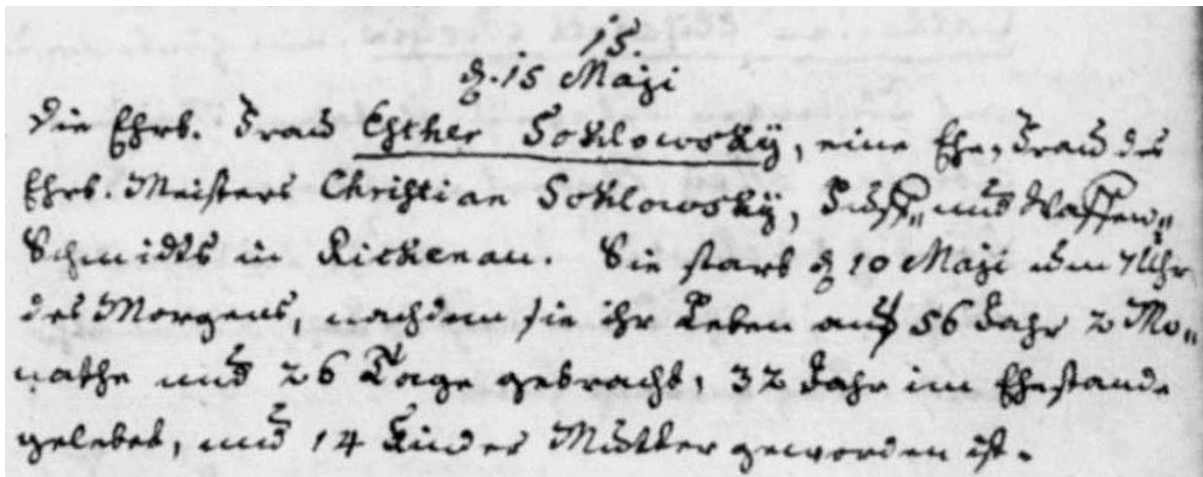 15.
d. 15 Maji
Die Ehrb. Frau Esther Soklowsky, eine Ehe, Frau des
Ehrb. Meisters Christian Soklowsky, Huff„ und Waffen„
Schmidts in Richenau. Sie starb d 10 Maji um 7 Uhr
des Morgens, nachdem sie ihr Leben auf 56 Jahr 2 Mo„
nathe und 26 Tage gebracht, 32 Jahr im Ehestande
gelebet, und 14 Kinder Mutter geworden ist.